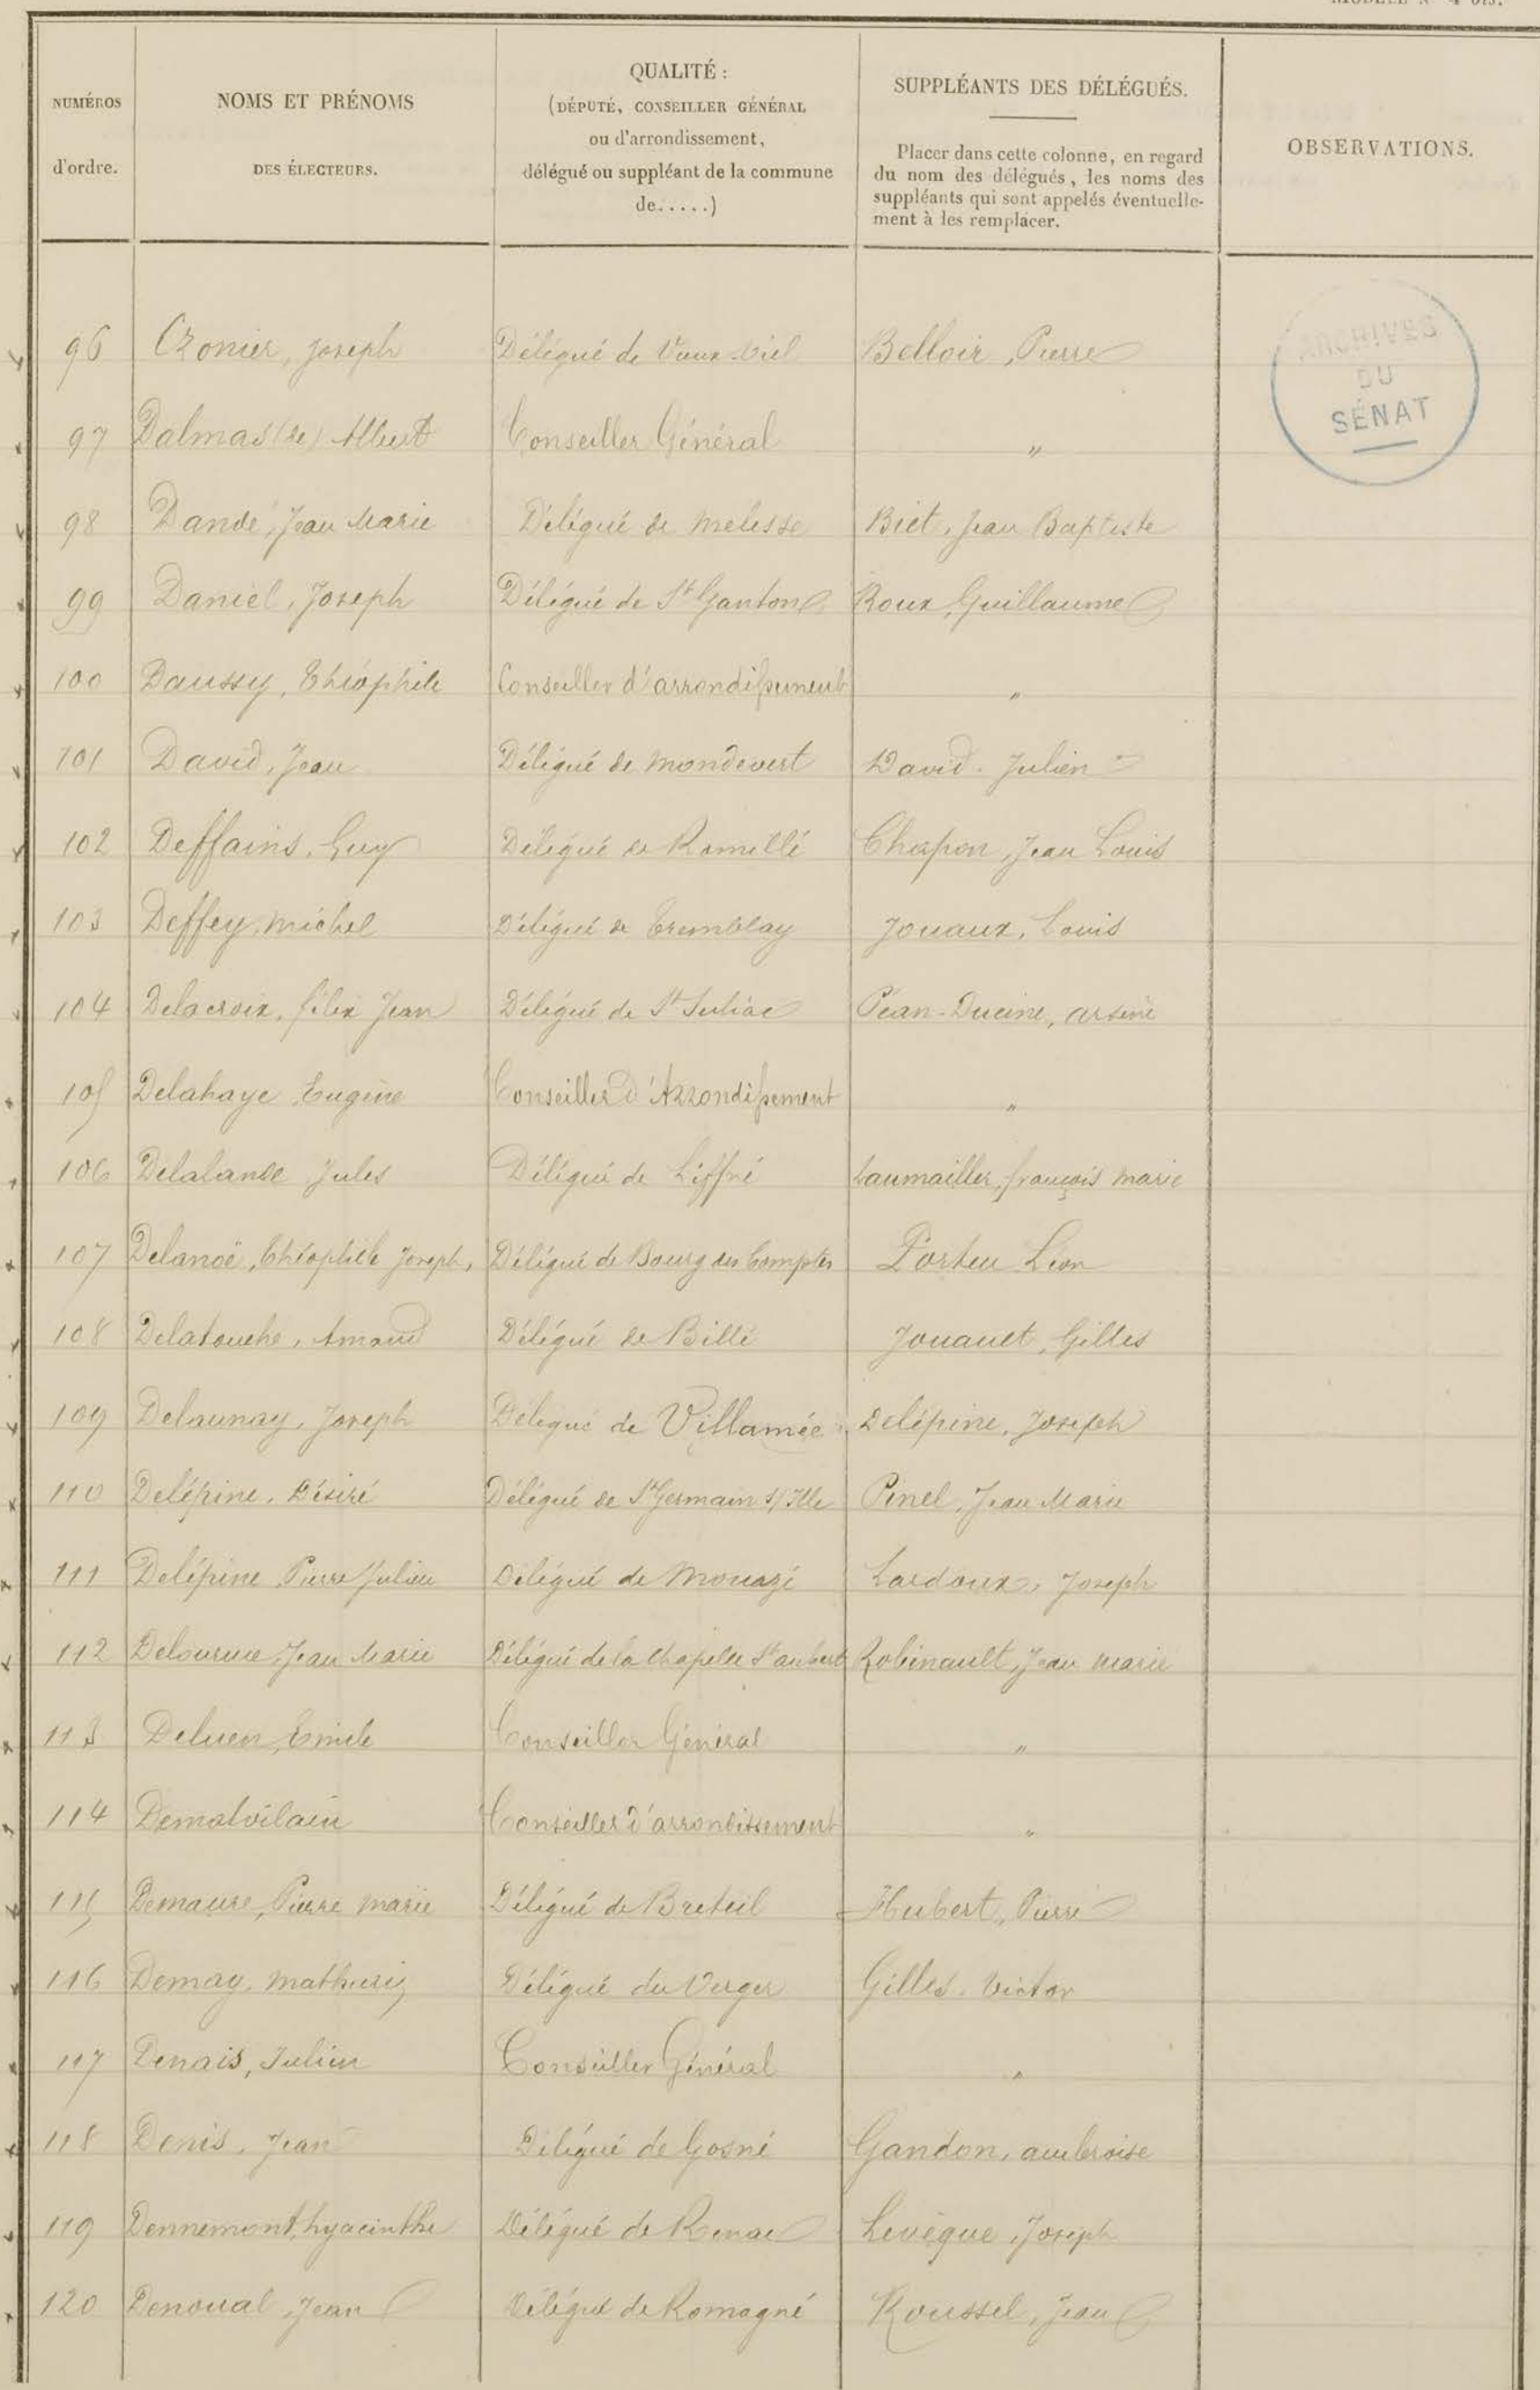 NUMÉROS
d'ordre.
NOMS ET PRÉNOMS
DES ÉLECTEURS.
QUALITÉ :
(DÉPUTÉ, CONSEILLER GÉNÉRAL
ou d'arrondissement,
délégué ou suppléant de la commune
de.....)
SUPPLÉANTS DES DÉLÉGUÉS.
Placer dans cette colonne, en regard
du nom des délégués, les noms des
suppléants qui sont appelés éventuelle-
ment à les remplacer.
OBSERVATIONS.
ARCHIVES
DU
SÉNAT
96 Cronier, Joseph Délégué de Vieux-Viel Belloir, Pierre
97 Dalmas (de) Albert Conseiller Général "
98 Dandé, Jean Marie Délégué de Melesse Biet, Jean Baptiste
99 Daniel, Joseph Délégué de St Ganton Roux, Guillaume
100 Daussy, Théophile Conseiller d'arrondissement "
101 David, Jean Délégué de Mondevert David. Julien
102 Deffains, Guy Délégué de Romillé Chapon, Jean Louis
103 Deffey, Michel Délégué de Tremblay Jouaux, Louis
104 Delacroix, félix Jean Délégué de St Suliac Péan-Ducine, arsène
105 Delahaye, Eugène Conseiller d'Arrondissement "
106 Delalande Jules Délégué de Liffré Laumailler, françois marie
107 Delanoë, Théophile Joseph, Délégué de Bourg des Comptes Porteu Léon
108 Delatouche, Amand Délégué de Billé Jouanet, Gilles
109 Delaunay, Joseph Délégué de Villamée Delépine, Joseph
110 Delépine, Désiré Délégué de St Germain s/ Ille Pinel, Jean Marie
111 Delépine Pierre Julien Délégué de Mouazé Lardoux, Joseph
112 Delourme, Jean Marie Délégué de la Chapelle St aubert Robinault, Jean marie
113 Deluen, Emile Conseiller Général "
114 Dematvilain Conseiller d'arrondissement "
115 Demaure, Pierre marie Délégué de Breteil Hubert, Pierre
116 Demay, Mathurin Délégué du Verger Gilles. Victor
117 Denais, Julien Conseiller Général "
118 Denis, Jean Délégué de Gosné Gandon, ambroise
119 Dennemont, hyacinthe Délégué de Renac Levêque, Joseph
120 Denoual, Jean Délégué de Romagné Roussel, Jean